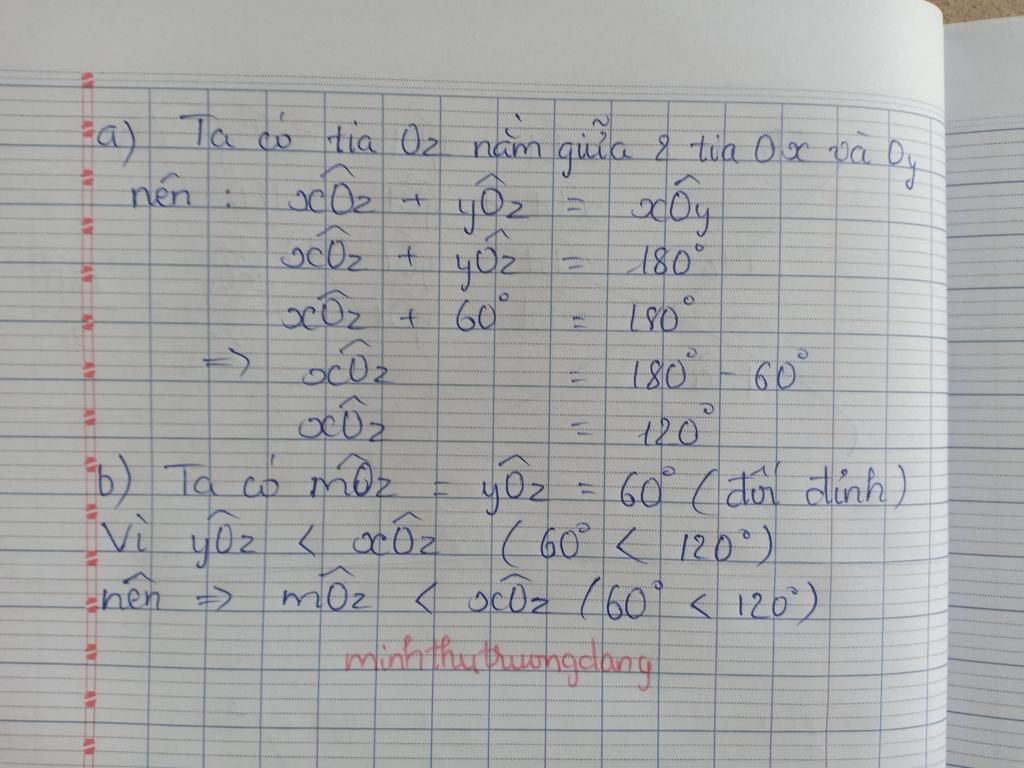 a) Ta có tia Oz nằm giữa 2 tia Ox và Oy
nên : xÔz + yÔz = xÔy
xÔz + yÔz = 180°
xÔz + 60° = 180°
=> xÔz = 180° - 60°
xÔz = 120°
b) Ta có mÔz = yÔz = 60° (đối đỉnh)
Vì yÔz < xÔz (60° < 120°)
nên => mÔz < xÔz (60° < 120°)
minhthutruongdang